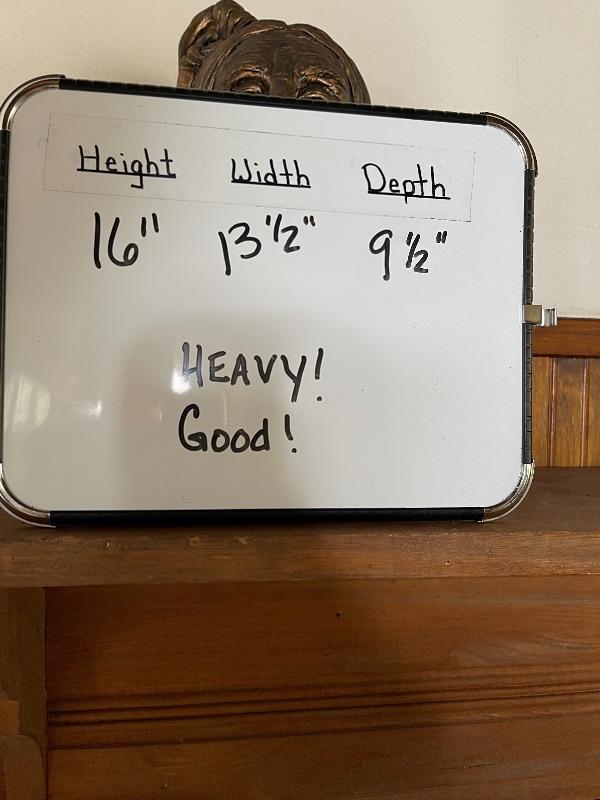 Height Width Depth
16" 13 1/2" 9 1/2"
HEAVY!
Good!